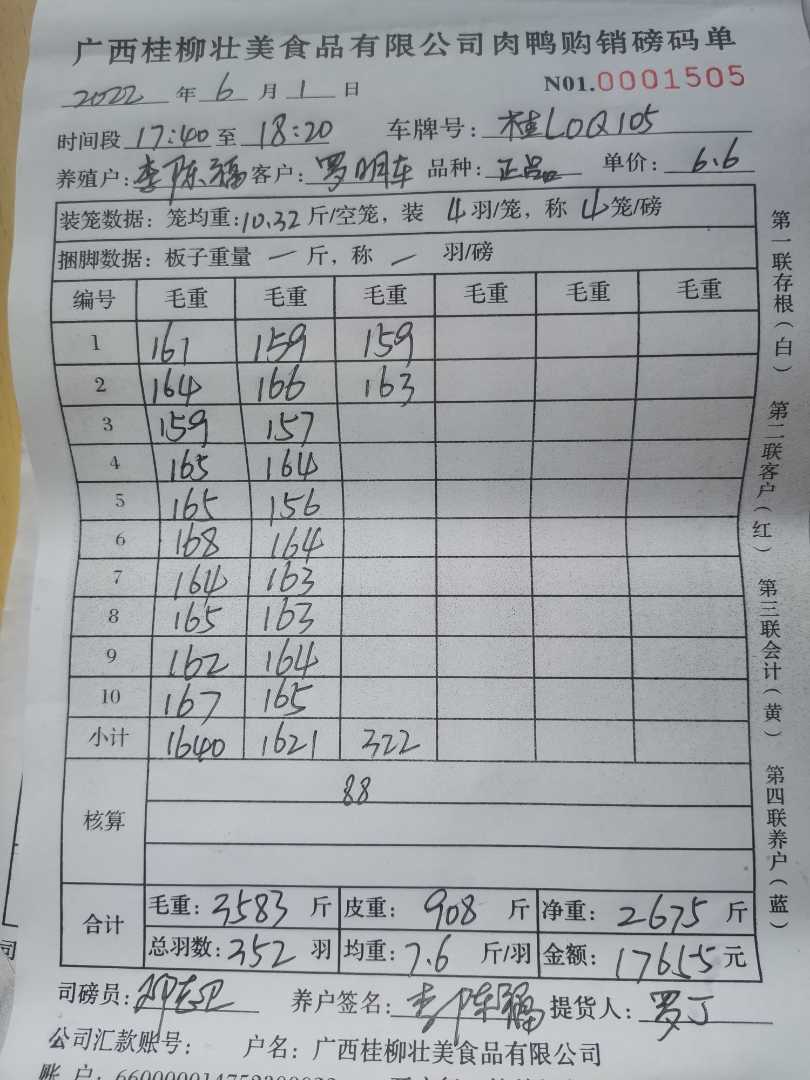 广西桂柳壮美食品有限公司肉鸭购销磅码单
2022 年 6 月 1 日 N01.0001505
时间段 17:40 至 18:20 车牌号: 桂L0Q105
养殖户: 李陈福 客户: 罗明车 品种: 正品 单价: 6.6
装笼数据: 笼均重: 10.32 斤/空笼, 装 4 羽/笼, 称 4 笼/磅
捆脚数据: 板子重量 一 斤, 称 一 羽/磅
编号 毛重 毛重 毛重 毛重 毛重 毛重
1 161 159 159
2 164 166 163
3 159 157
4 165 164
5 165 156
6 168 164
7 164 163
8 165 163
9 162 164
10 167 165
小计 1640 1621 322
核算 88
合计 毛重: 3583 斤 皮重: 908 斤 净重: 2675 斤
总羽数: 352 羽 均重: 7.6 斤/羽 金额: 17655 元
司磅员: 养户签名: 李陈福 提货人: 罗丁
公司汇款账号: 户名: 广西桂柳壮美食品有限公司
账 户:
第一联存根(白) 第二联客户(红) 第三联会计(黄) 第四联养户(蓝)
司